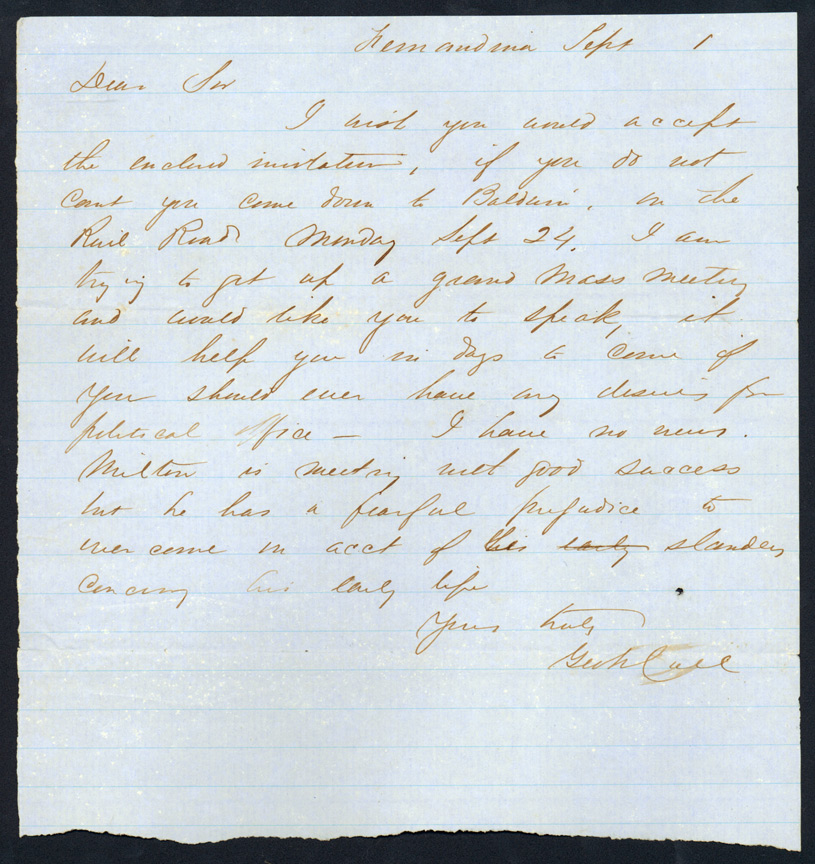 Fernandina Sept 1
Dear Sir
I wish you would accept
the enclosed invitation, if you do not
cant you come down to Baldwin. on the
Rail Road Monday Sept 24. I am
trying to get up a grand Mass meeting
and would like you to speak, it
will help you in days to come if
you should ever have any desires for
political office — I have no news.
Milton is meeting with good success
but he has a fearful prejudice to
over come on acct of his early slanders
concerng his early life
Yours truly
Geo W Call